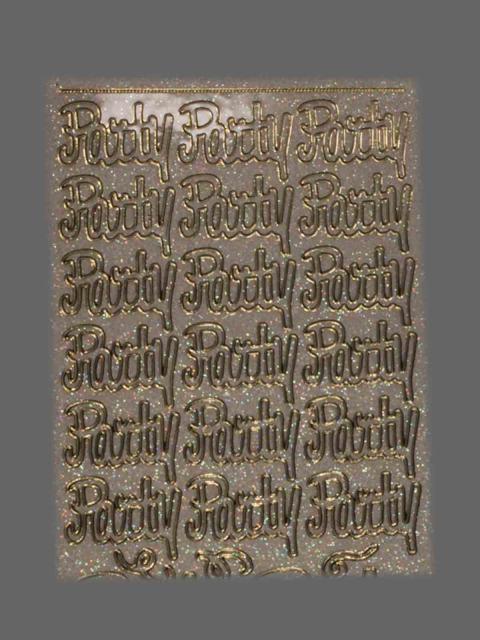 Party Party Party
Party Party Party
Party Party Party
Party Party Party
Party Party Party
Party Party Party